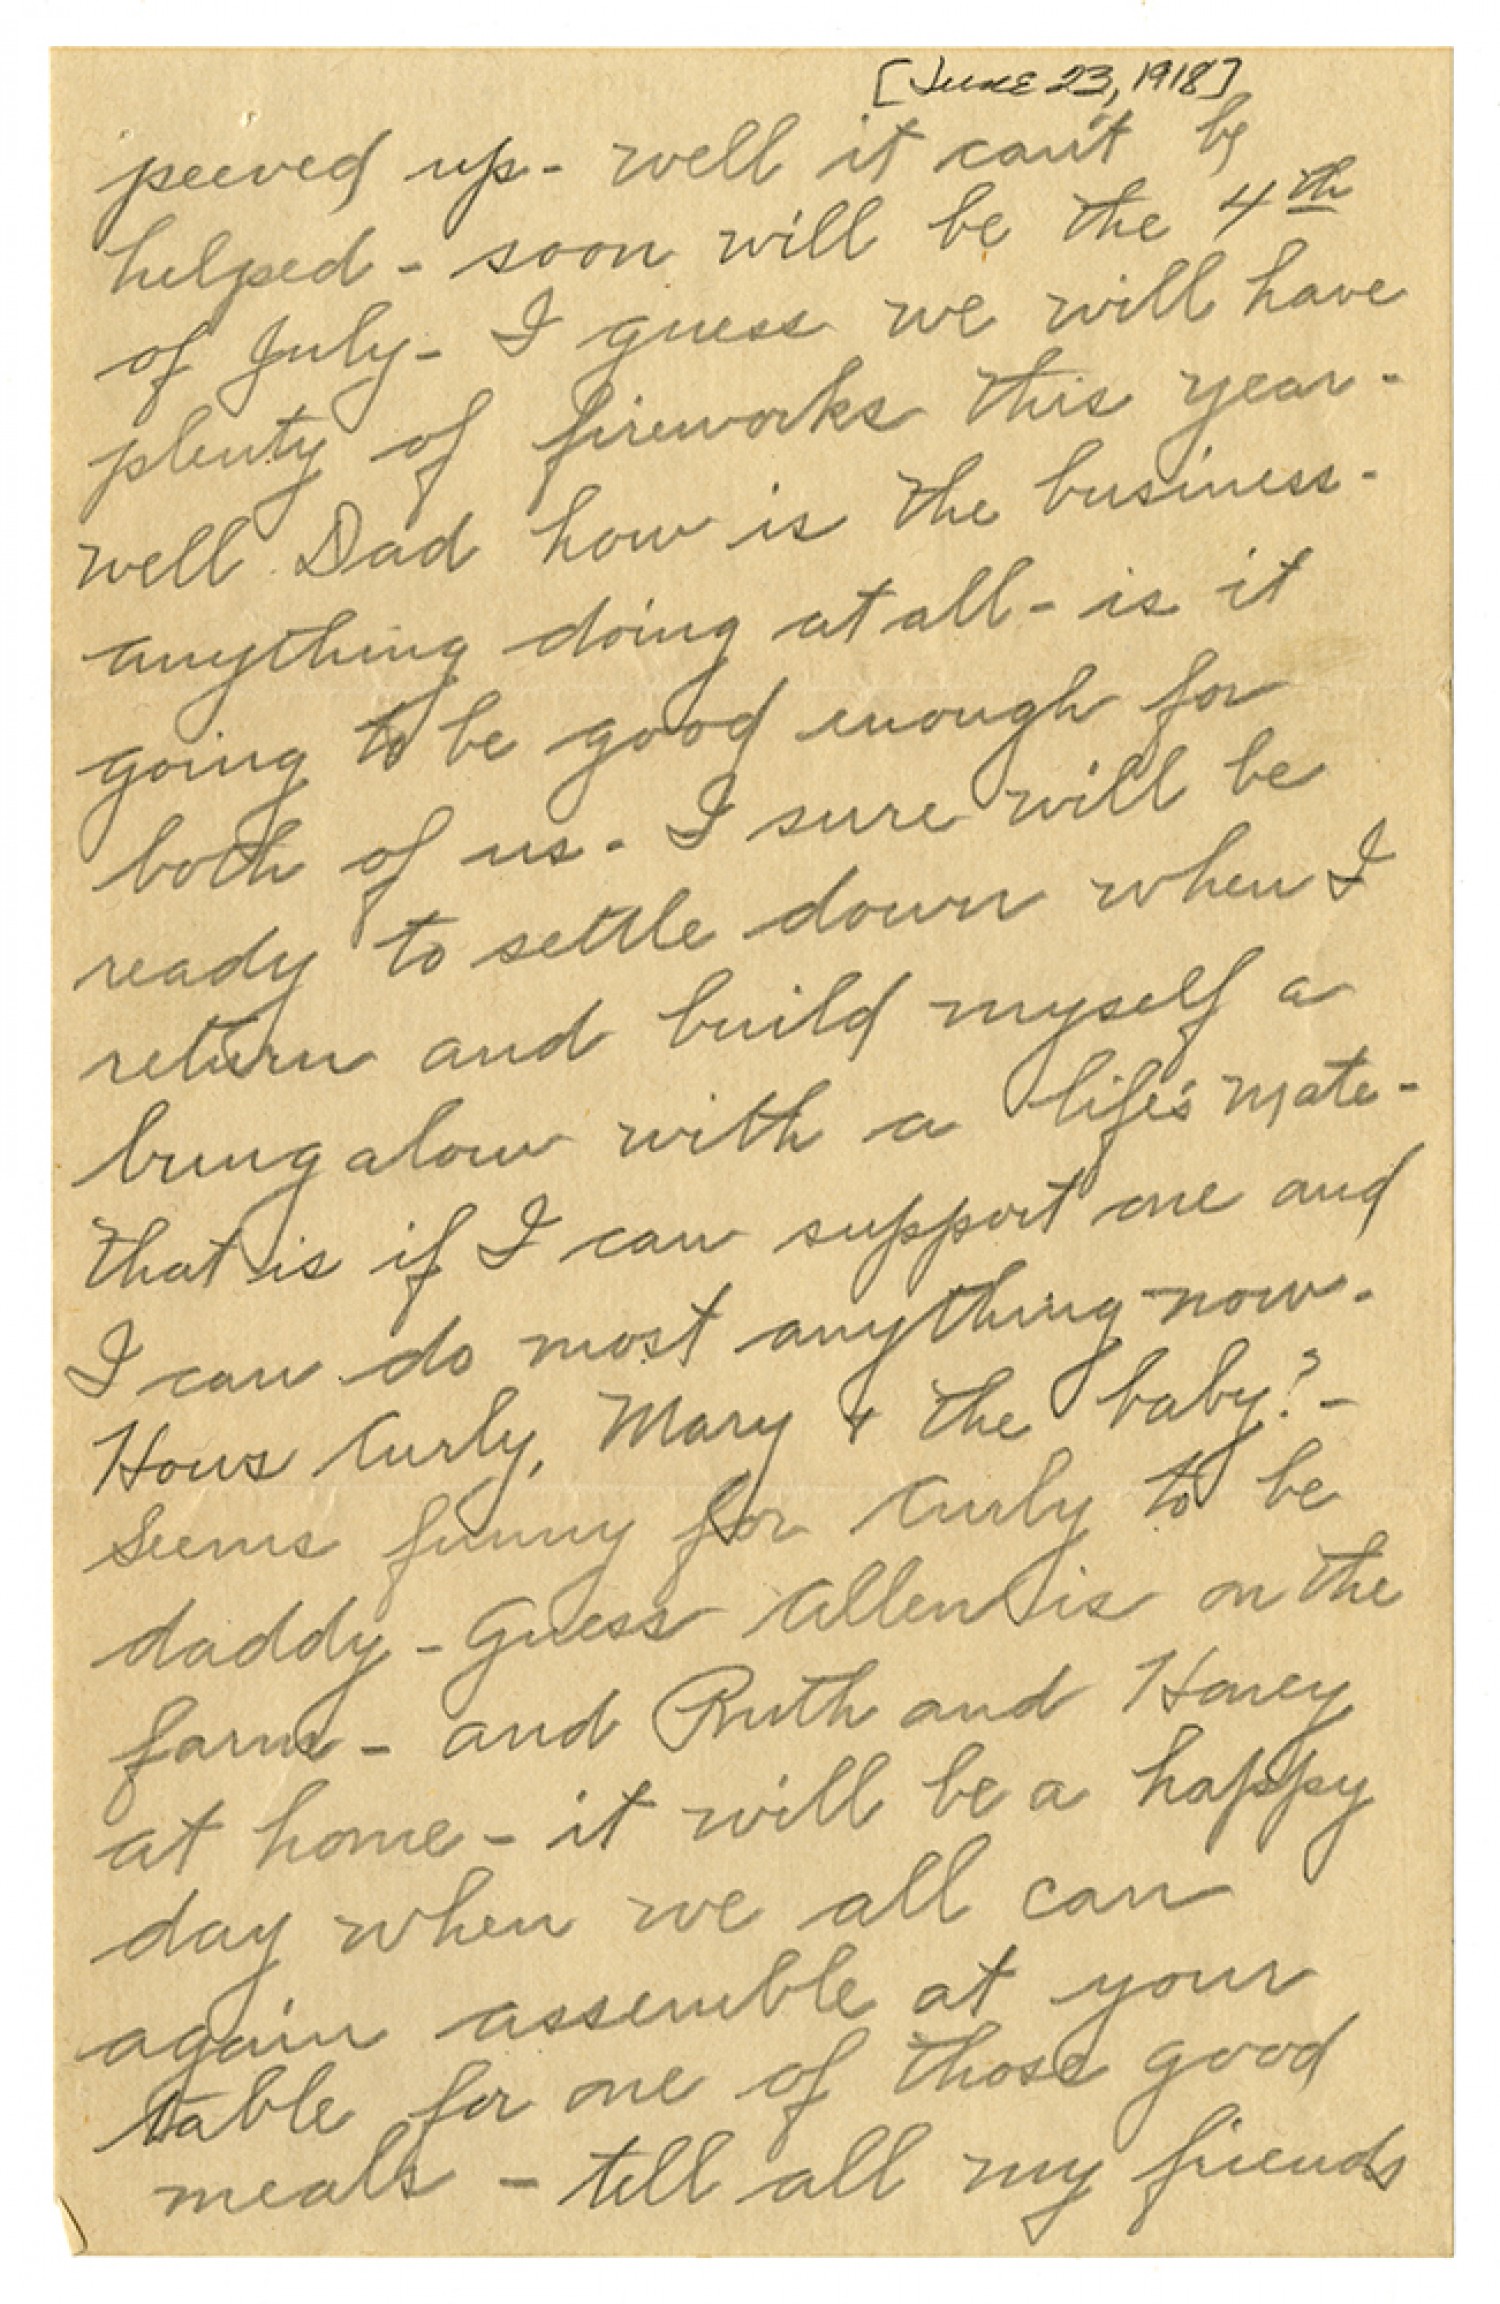 [June 23, 1918]
peeved up - well it can't be
helped - soon will be the 4th
of July - I guess we will have
plenty of fireworks this year -
well Dad how is the business -
anything doing at all - is it
going to be good enough for
both of us - I sure will be
ready to settle down when I
return and build myself a
bungalow with a life's mate -
that is if I can support one and
I can do most anything now -
Hows Curly, Mary & the baby? -
Seems funny for Curly to be
daddy - Guess Allen is on the
farm - and Ruth and Harvey
at home - it will be a happy
day when we all can
again assemble at your
table for one of those good
meals - tell all my friends